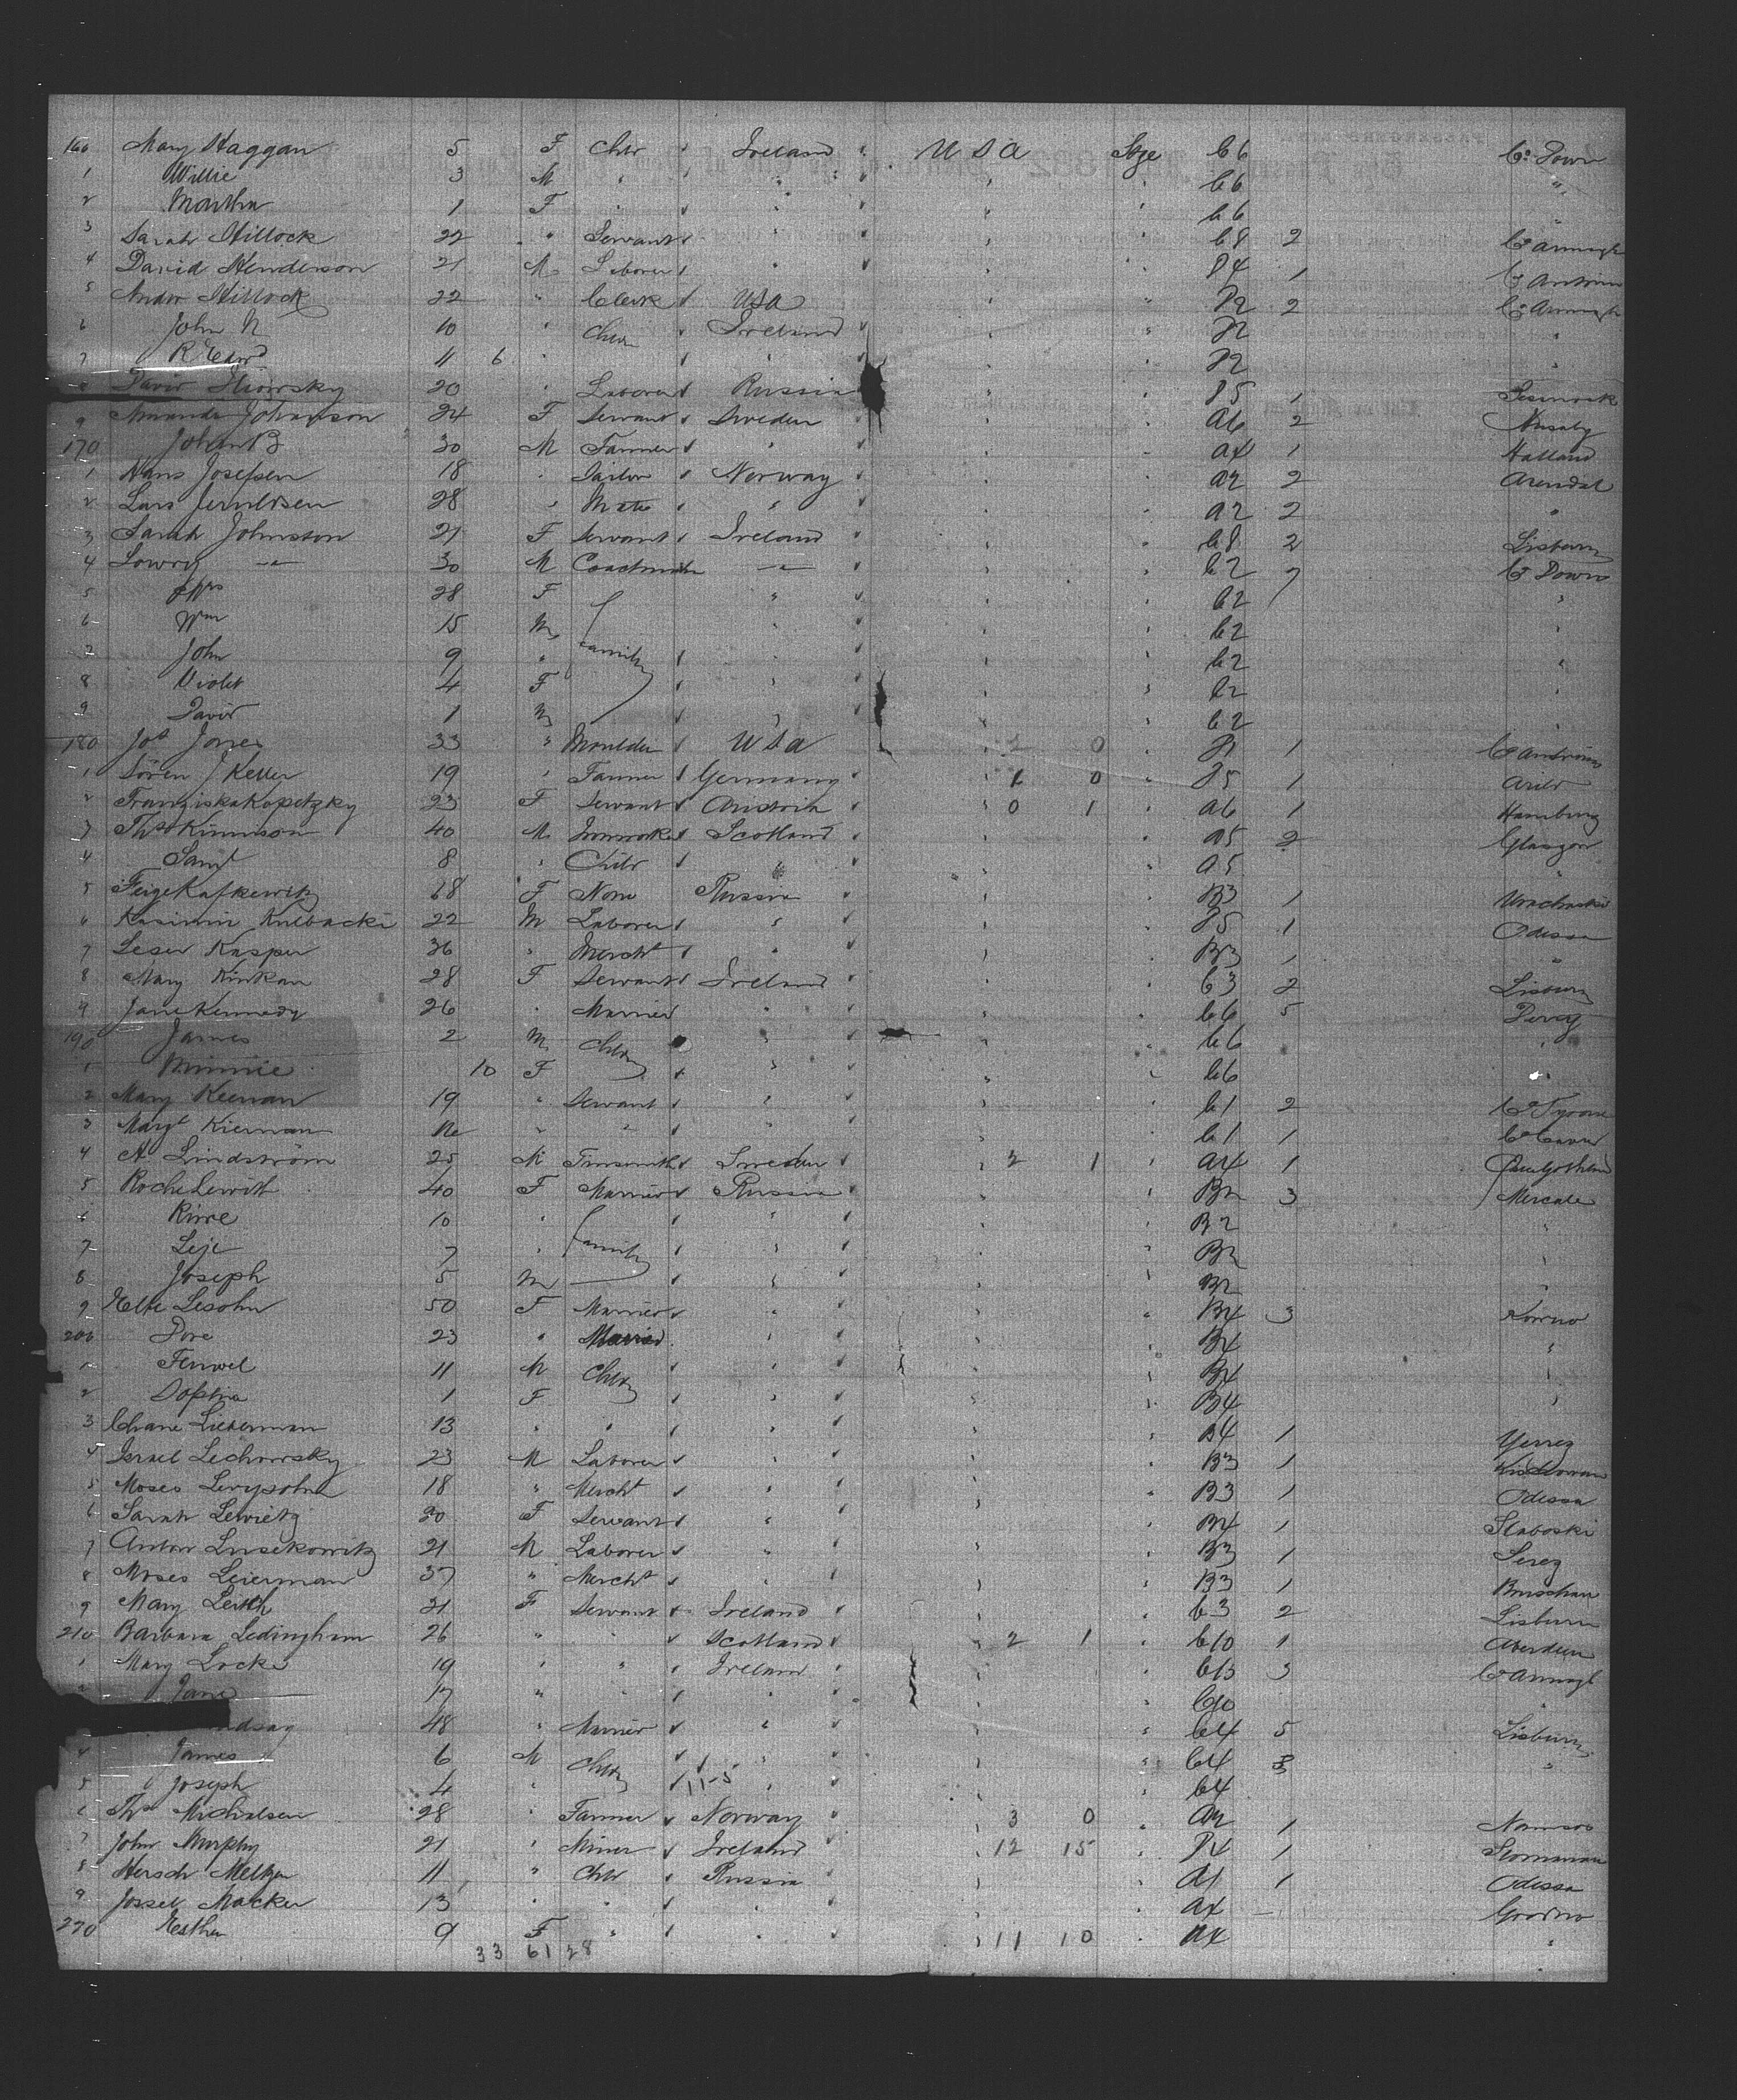 160 Mary Haggan 5 F Chld Ireland U S A Stge C6 Co Down
1 Willie 3 M " " C6 "
2 Martha 1 F " " C6 "
3 Sarah Hillock 22 " Servant " C8 2 Co Armagh
4 David Henderson 21 M Laborer " P4 1 Co Antrim
5 Andw Hillock 22 " Clerk USA P2 2 Co Armagh
6 John N 10 " Chldn Ireland P2 "
7 R Edwd 11 6 " " P2 "
David 20 " Laborer Russia P5 1
9 Amanda Johanson 24 F Servant Sweden A6 2
170 Johan B 30 M Farmer " A4 1 Halland
1 Hans Josefsen 18 " Tailor Norway A2 2 Arendal
2 Lars 28 " Mate " A2 2 "
3 Sarah Johnston 21 F Servant Ireland C8 2 Lisburn
4 Lowry — " — 30 M Coachman — " — C2 7 Co Down
5 Mrs 28 F " C2 "
6 Wm 15 M " C2 "
7 John 9 " Family " C2 "
8 Violet 4 F " C2 "
9 David 1 M " C2 "
180 Jos Jones 33 " Moulder U S A 2 0 P1 1 Co Antrim
1 Sören J Keller 19 " Farmer Germany 6 0 P5 1
2 Franziska Kopetzky 23 F Servant Austria 0 1 A6 1 Hamburg
3 Thos Kinnison 40 M Ironworker Scotland A5 2 Glasgow
4 Saml 8 " Child " A5 "
5 Feige Kafkewitz 18 F None Russia B3 1
6 Kasimir Kulbacki 22 M Laborer " P5 1 Odessa
7 Leser Kasper 36 " Mercht " B3 1 "
8 Mary Kinkan 28 F Servant Ireland C3 2 Lisburn
9 Jane Kennedy 26 " Married " C6 5 Derry
190 James 2 M Chldn " C6 "
1 Minnie 10 F " C6
2 Mary Keenan 19 " Servant " C1 2 Co Tyrone
3 Margt Kiernan " " " C1 1 Co Cavan
4 A Lindström 25 M Tinsmith Sweden 2 1 A4 1
5 Roche Lewith 40 F Married Russia B2 3
6 Rirre 10 " " B2 "
7 Leje 7 " Family " B2 "
8 Joseph 5 M " B2 "
9 Elte Lesohn 50 F Married " B4 3 Kowno
200 Dore 23 " Married " B4 "
1 11 M Chldn " B4 "
2 Sophia 1 F " B4 "
3 Chane Lieberman 13 " " " B4 1
4 Israel Lechowsky 23 M Laborer " B3 1
5 Moses Levysohn 18 " Mercht " B3 1 Odessa
6 Sarah Lewietz 20 F Servant " B4 1 Slaboski
7 Anton Lusekowitz 21 M Laborer " B3 1
8 Moses Leierman 37 " Mercht " B3 1
9 Mary Leith 21 F Servant Ireland C3 2 Lisburn
210 Barbara Ledingham 26 " " Scotland 2 1 C10 1 Aberdeen
1 Mary Locke 19 " " Ireland C13 3 Co Armagh
2 Jane 17 " " " C10 "
ndsay 48 " Married " C4 5 Lisburn
4 James 6 M Chldn " C4 3 "
5 Joseph 4 " 11-5 " C4
6 Thos Michalsen 28 " Farmer Norway 3 0 A2 1 Namsos
7 John Murphy 21 " Miner Ireland 12 15 P4 1
8 Hersch Meltzer 11 " Chld Russia A1 1 Odessa
9 Jossel Macker 13 " " " A4 — Grodno
220 Esther 9 F " " 11 10 A4 "
33 61 28